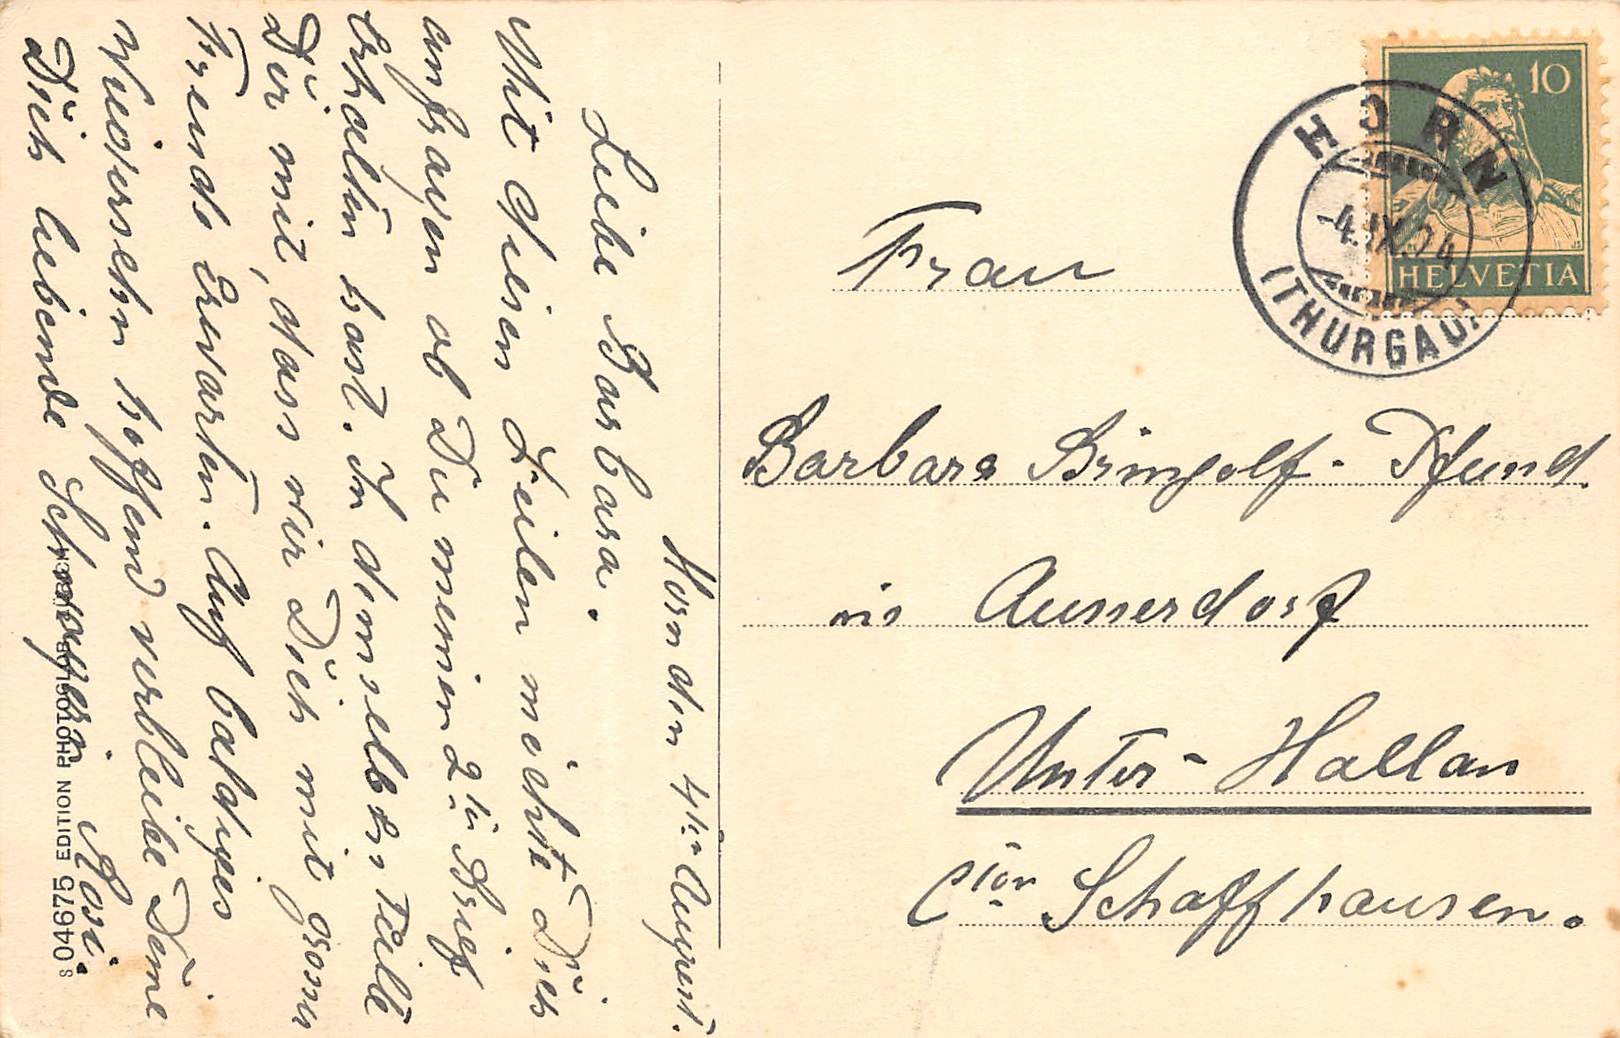 Horn den 4ten August.
Liebe Barbara.
Mit diesen Zeilen möchte Dich
anfragen ob Du meinen 2ten Brief
Erhalten hast. In demselben Teilte
Dir mit, dass wir Dich mit grosser
Freude Erwarten. Auf baldiges
Wiedersehn hoffend verbleibe Deine
Dich liebende Schwägerin Rosi.
S 04675 EDITION PHOTOGLOB
10
HELVETIA
HORN
-4.IX.24
(THURGAU)
Frau
Barbara Bringolf-Pfund.
Ausserdorf
Unter-Hallau
Cton Schaffhausen.